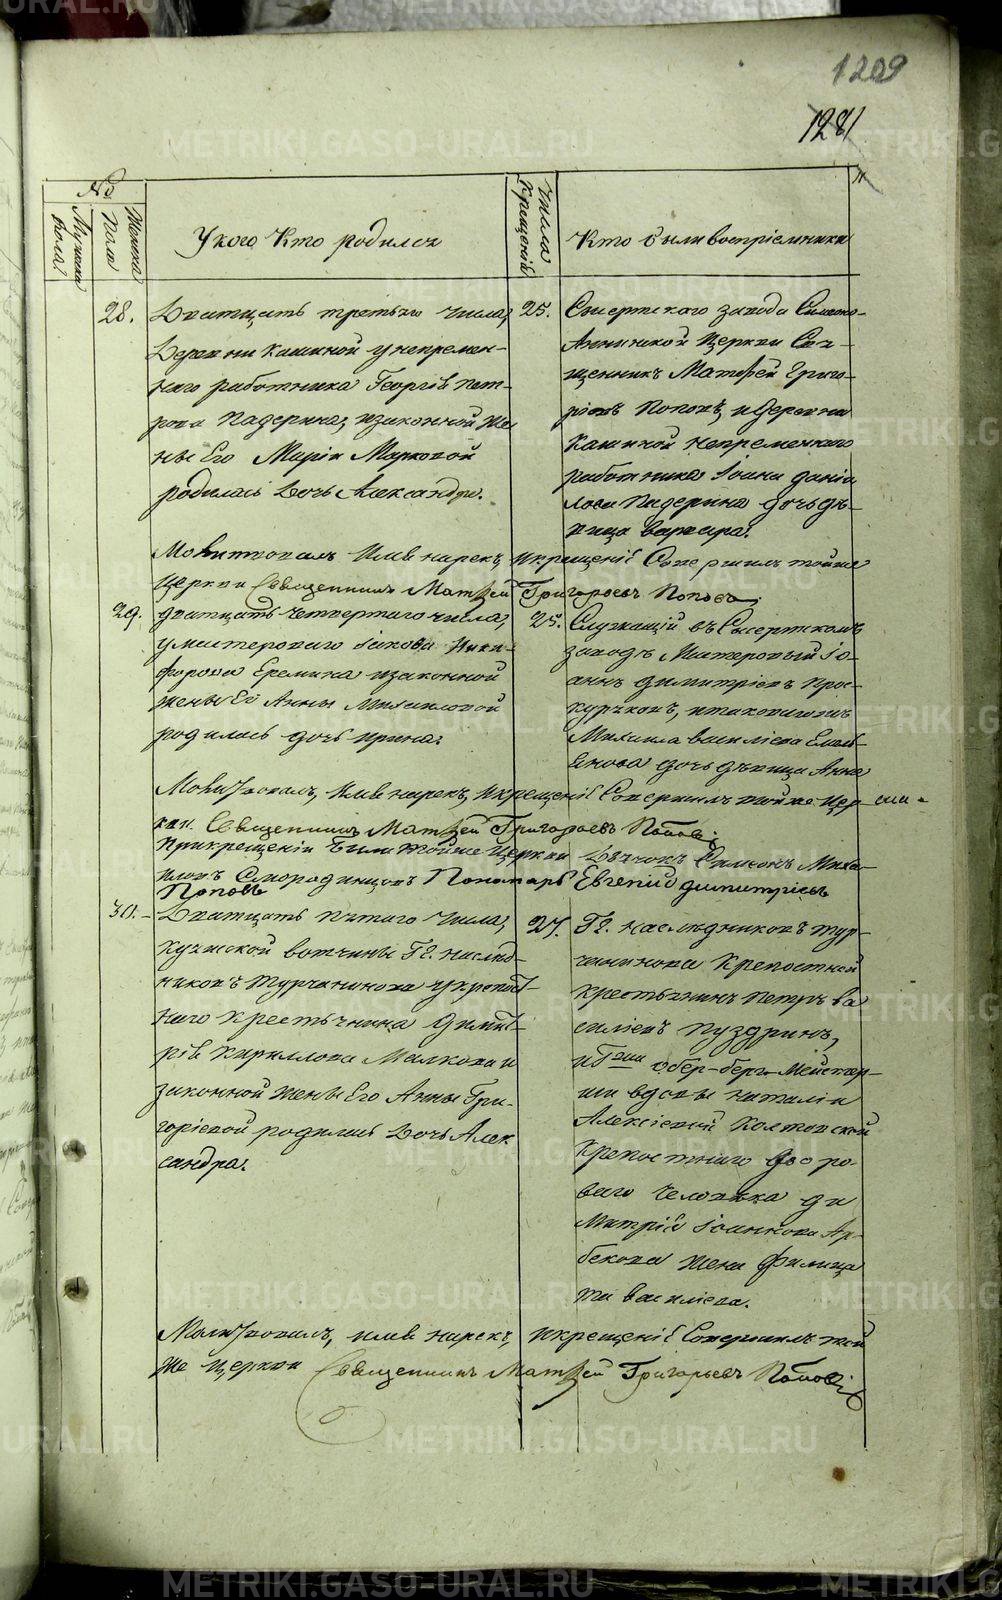 1209
1281
№
Мужска пола.
Женска пола
У кого Кто родился
Числа Крещенiй
Кто были воспрiемники
28. Дватцать третьяго числа,
Деревни Кашиной у непремен-
наго работника Георгiя Пет-
рова Падерина, изаконной же-
ны Его Марiи Марковой
родилась Дочь Александра.
25. Сысертскаго завода Симеоно-
Аннинской Церкви Свя-
щенникъ Матѳей Григо-
рiевъ Поповъ, и деревни
Кашиной непременнаго
работника Iоанна Данiи
лова Падерина дочь дѣ-
вица Варвара.
Молитвовалъ Имя нарекъ, и крещенiе Совершилъ тойже
Церкви Священникъ Матѳей Григорьевъ Поповъ.
29. дватцать четвертаго числа,
у мастероваго Iакова Ники-
форова Еремина изаконной
жены Ег Анны Михайловой
родилась дочь Ирина.
25. Служащiй въ Сысертскомъ
заводѣ Мастеровый Iо-
аннъ Димитрiевъ Прос-
куряковъ, итаковагожъ
Михаила Василiева Емель-
янова дочь дѣвица Анна
Молитвовалъ, Имя нарекъ, Икрещенiе Совершилъ тойже Цер-
кви Священникъ Матѳей Григорьевъ Поповъ
Прикрещенiи были тойже Церкви Дьячокъ Симеонъ Миха-
иловъ Смородинцовъ Пономарь Евгенiй Димитрiевъ
Поповъ
30. Дватцать пятаго числа,
вотчины Гг. наслѣд-
никовъ Турчанинова укрепост-
наго крестьянина Димит-
рiя Кириллова Малкова и
законной жены Его Анны Гри-
горiевой родилась Дочь Алек
сандра.
27. Гг. наслѣдниковъ Тур-
чанинова Крепостный
крестьянинъ Петръ Ва
силiевъ Пуздринъ,
и Гжи обер-берг-мейстер-
ши вдовы Наталiи
Алексiевой Колтовской
Крепостнаго дворо-
ваго человѣка Ди
митрiя Iоаннова Ар-
бекова жена Филица
та Василiева.
Молитвовалъ, имя нарекъ, икрещенiе Совершилъ той
же Церкви Священникъ Матѳей Григорьевъ Поповъ
METRIKI.GASO-URAL.RU